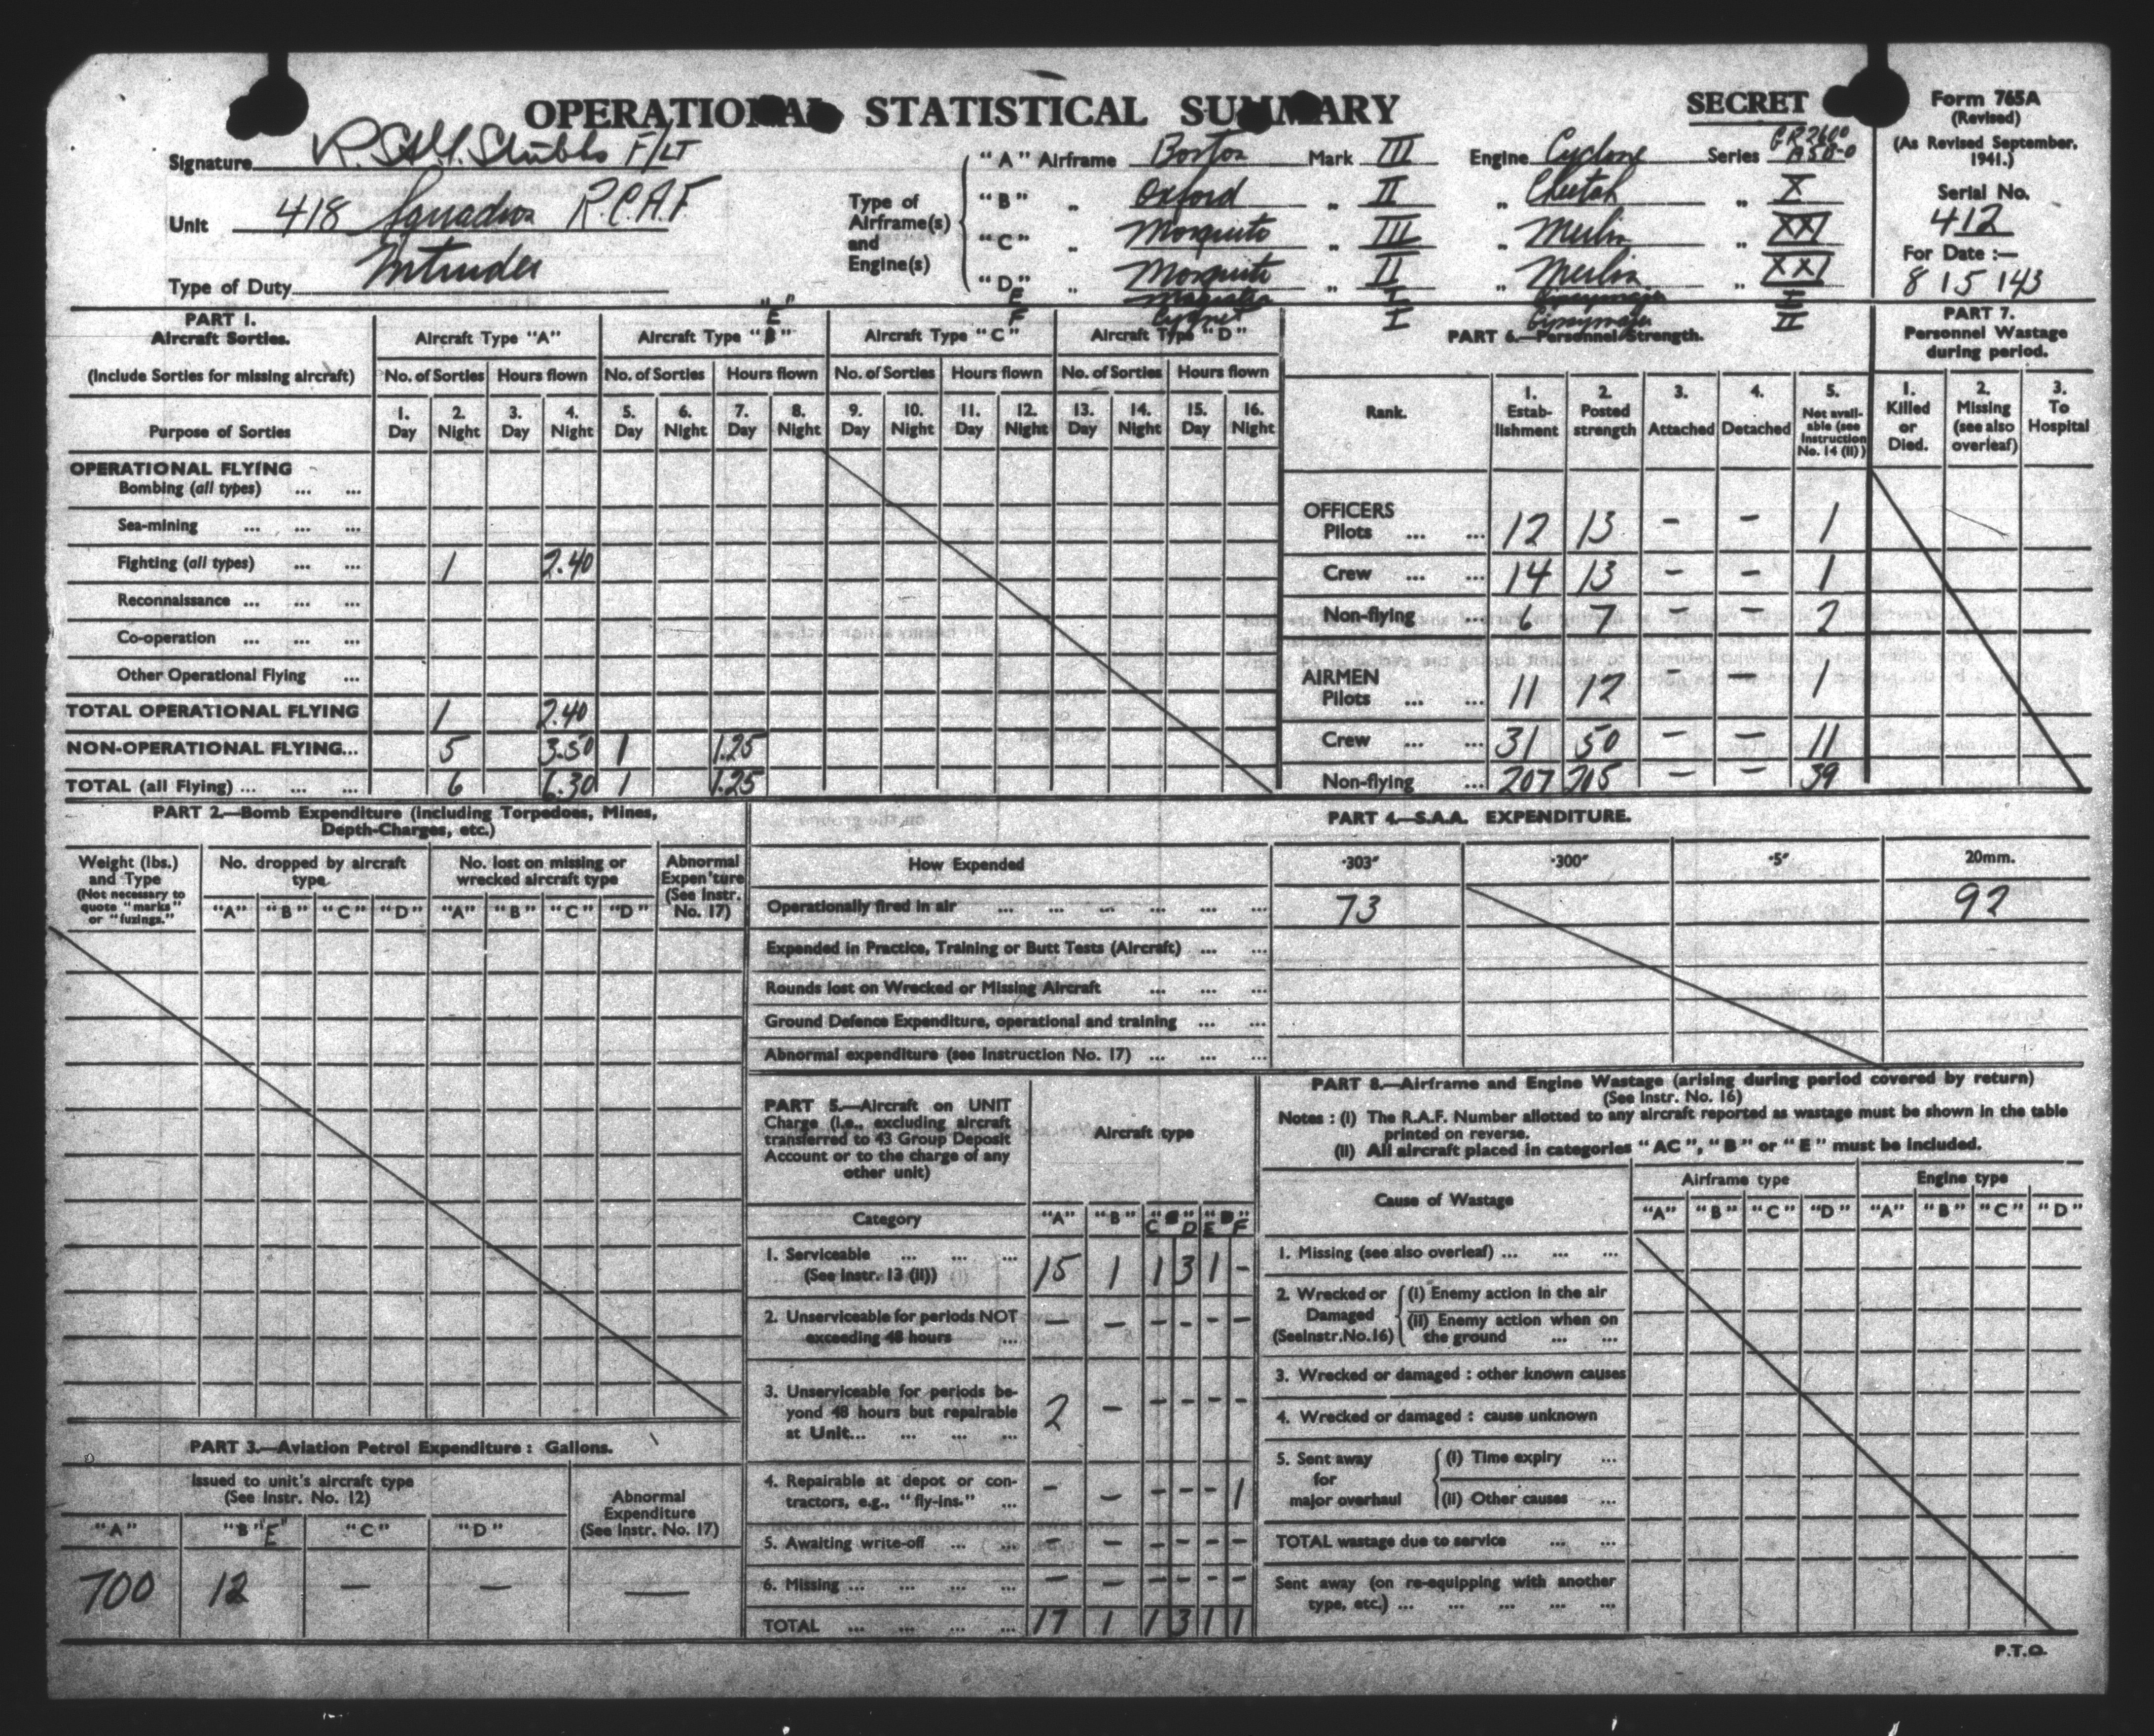 OPERATIONAL STATISTICAL SUMMARY
SECRET
Form 765A
(Revised)
(As Revised September, 1941.)
Serial No.
412
For Date :—
8/5/43
Signature R. Stubbs F/LT
Unit 418 Squadron R.C.A.F.
Type of Duty Intruder
Type of Airframe(s) and Engine(s)
"A" Airframe Boston Mark III Engine Cyclone Series GR2600 A5B-0
"B" „ Oxford „ II „ Cheetah „ X
"C" „ Mosquito „ III „ Merlin „ XXI
"D" „ Mosquito „ II „ Merlin „ XXI
E Magister I Gipsymajor I
F Cygnet I Gipsymajor II
PART 1.
Aircraft Sorties.
(Include Sorties for missing aircraft)
Aircraft Type "A" Aircraft Type "B" "E" Aircraft Type "C" Aircraft Type "D"
No. of Sorties Hours flown No. of Sorties Hours flown No. of Sorties Hours flown No. of Sorties Hours flown
Purpose of Sorties
1. Day 2. Night 3. Day 4. Night 5. Day 6. Night 7. Day 8. Night 9. Day 10. Night 11. Day 12. Night 13. Day 14. Night 15. Day 16. Night
OPERATIONAL FLYING
Bombing (all types) ... ...
Sea-mining ... ... ...
Fighting (all types) ... ... 1 2.40
Reconnaissance ... ... ...
Co-operation ... ... ...
Other Operational Flying ...
TOTAL OPERATIONAL FLYING 1 2.40
NON-OPERATIONAL FLYING... 5 3.50 1 1.25
TOTAL (all Flying) ... ... ... 6 6.30 1 1.25
PART 6.—Personnel Strength.
Rank.
1. Establishment 2. Posted strength 3. Attached 4. Detached 5. Not available (see Instruction No. 14 (ii))
OFFICERS
Pilots ... ... 12 13 - - 1
Crew ... ... 14 13 - - 1
Non-flying ... 6 7 - - 2
AIRMEN
Pilots ... ... 11 12 - - 1
Crew ... ... 31 50 - - 11
Non-flying ... 207 205 - - 39
PART 7.
Personnel Wastage during period.
1. Killed or Died. 2. Missing (see also overleaf) 3. To Hospital
PART 2.—Bomb Expenditure (including Torpedoes, Mines, Depth-Charges, etc.)
Weight (lbs.) and Type
(Not necessary to quote "marks" or "fuzings."
No. dropped by aircraft type
No. lost on missing or wrecked aircraft type
Abnormal Expen'ture (See Instr. No. 17)
"A" "B" "C" "D" "A" "B" "C" "D"
PART 3.—Aviation Petrol Expenditure : Gallons.
Issued to unit's aircraft type
(See Instr. No. 12)
Abnormal Expenditure
(See Instr. No. 17)
"A" "B" "E" "C" "D"
700 12 — — —
PART 4.—S.A.A. EXPENDITURE.
How Expended ·303" ·300" ·5" 20mm.
Operationally fired in air ... ... ... ... ... ... 73 92
Expended in Practice, Training or Butt Tests (Aircraft) ... ...
Rounds lost on Wrecked or Missing Aircraft ... ... ...
Ground Defence Expenditure, operational and training ... ...
Abnormal expenditure (see Instruction No. 17) ... ... ...
PART 5.—Aircraft on UNIT Charge (i.e., excluding aircraft transferred to 43 Group Deposit Account or to the charge of any other unit)
Aircraft type
Category "A" "B" C D E F
1. Serviceable ... ... ...
(See Instr. 13 (ii)) 15 1 1 3 1 -
2. Unserviceable for periods NOT exceeding 48 hours ... - - - - - -
3. Unserviceable for periods beyond 48 hours but repairable at Unit... ... ... ... 2 - - - - -
4. Repairable at depot or contractors, e.g., "fly-ins." ... - - - - - 1
5. Awaiting write-off ... ... - - - - - -
6. Missing ... ... ... ... - - - - - -
TOTAL ... ... ... ... 17 1 1 3 1 1
PART 8.—Airframe and Engine Wastage (arising during period covered by return)
(See Instr. No. 16)
Notes : (i) The R.A.F. Number allotted to any aircraft reported as wastage must be shown in the table printed on reverse.
(ii) All aircraft placed in categories "AC", "B" or "E" must be included.
Cause of Wastage
Airframe type Engine type
"A" "B" "C" "D" "A" "B" "C" "D"
1. Missing (see also overleaf) ... ... ...
2. Wrecked or Damaged (See Instr. No. 16)
(i) Enemy action in the air
(ii) Enemy action when on the ground ... ...
3. Wrecked or damaged : other known causes
4. Wrecked or damaged : cause unknown
5. Sent away for major overhaul
(i) Time expiry ...
(ii) Other causes ...
TOTAL wastage due to service ... ...
Sent away (on re-equipping with another type, etc.) ... ... ... ... ...
P.T.O.